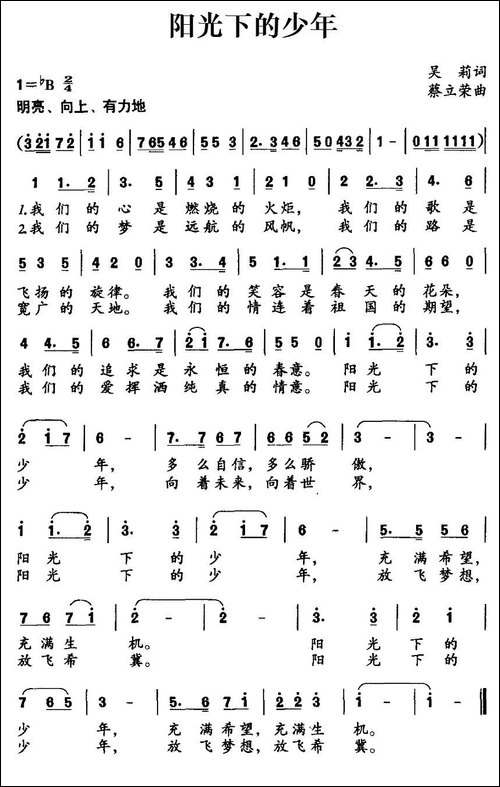 阳光下的少年
1=♭B 2/4
吴 莉词
蔡立荣曲
明亮、向上、有力地
(3 2 1 7 2 | i i 6 | 7 6 5 4 6 | 5 5 3 | 2. 3 4 6 | 5 0 4 3 2 | 1 - | 0 1 1 1 1 1 1 1) |
1 1. 2 | 3. 5 | 4 3 1 | 2 1 0 | 2 2. 3 | 4. 6 |
1.我 们 的 心 是 燃 烧 的 火 炬, 我 们 的 歌 是
2.我 们 的 梦 是 远 航 的 风 帆, 我 们 的 路 是
5 3 5 | 4 2 0 | 3 3. 4 | 5 1. 1 | 2 3 4. 5 | 6 6 0 |
飞 扬 的 旋 律。 我 们 的 笑 容 是 春 天 的 花 朵,
宽 广 的 天 地。 我 们 的 情 连 着 祖 国 的 期 望,
4 4. 5 | 6 6. 7 | 2 i 7. 6 | 5 5 0 | i i. 2 | 3. 3 |
我 们 的 追 求 是 永 恒 的 春 意。 阳 光 下 的
我 们 的 爱 挥 洒 纯 真 的 情 意。 阳 光 下 的
2 i 7 | 6 - | 7. 7 6 7 | 6 6 5 2 | 3 - | 3 - |
少 年, 多 么 自 信, 多 么 骄 傲,
少 年, 向 着 未 来, 向 着 世 界,
i i. 2 | 3. 3 | 2 i 7 | 6 - | 5. 5 5 6 |
阳 光 下 的 少 年, 充 满 希 望,
阳 光 下 的 少 年, 放 飞 梦 想,
7 6 7 i | 2 - | 2 - | 3. 3 | 2 i |
充 满 生 机。 阳 光 下 的
放 飞 希 冀。 阳 光 下 的
7 6 5 | 3 - | 5. 6 7 i | 2 2 3 | i - | i - |
少 年, 充 满 希 望, 充 满 生 机。
少 年, 放 飞 梦 想, 放 飞 希 冀。